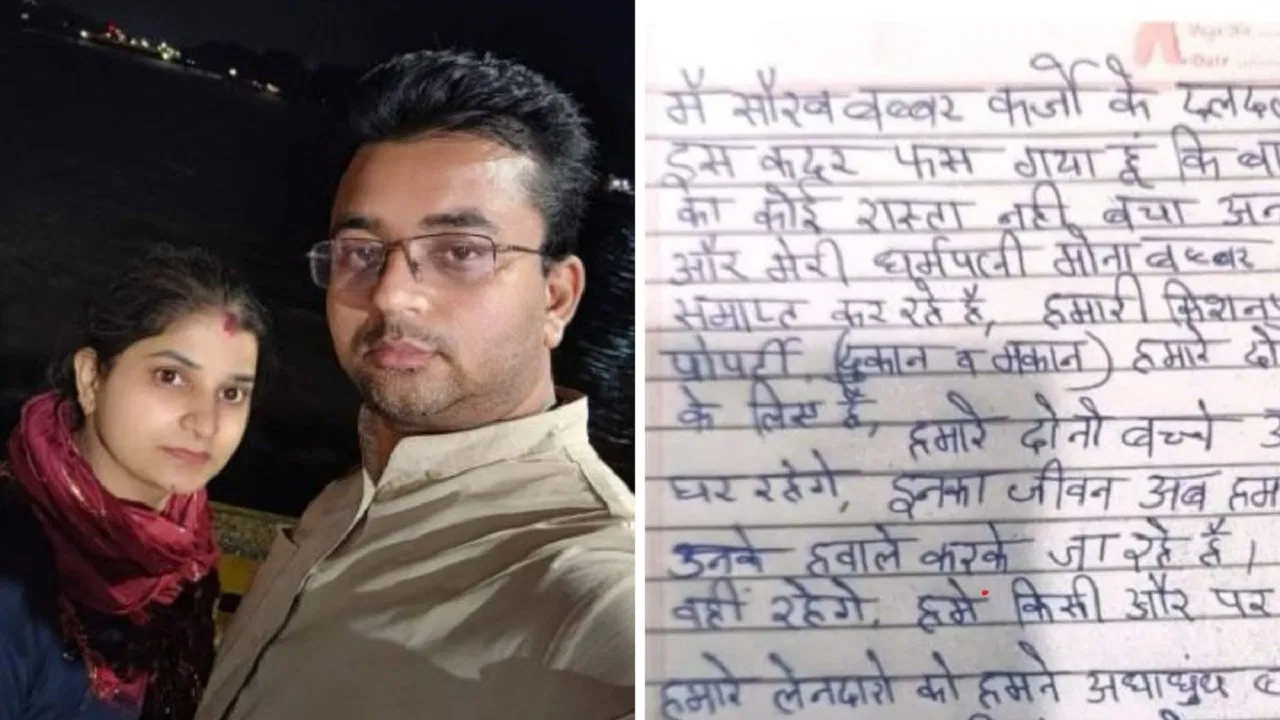 Page No.
Date
मै सौरव बब्बर कर्जो के दलदल
इस कदर फस गया हूं कि बा
का कोई रास्ता नही बचा अन
और मेरी धर्मपत्नी मोना बब्बर
समाप्त कर रहे है, हमारी किशनप
प्रोपर्टी (दुकान व मकान) हमारे दो
के लिए है, हमारे दोनो बच्चे अ
घर रहेगे, इनका जीवन अब हम
उनके हवाले करके जा रहे है।
वहीं रहेगे, हमें किसी और पर
हमारे लेनदारो को हमने अधाधुंध ब